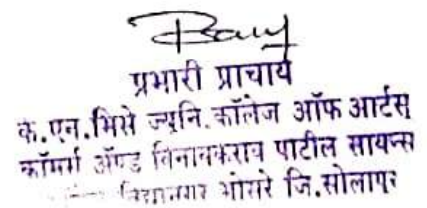 प्रभारी प्राचार्य
क.एन.भिसे ज्युनि.कॉलेज ऑफ आर्टस्
कॉमर्स ॲण्ड विनायकराव पाटील सायन्स
विद्यानगर भोसरे जि.सोलापूर